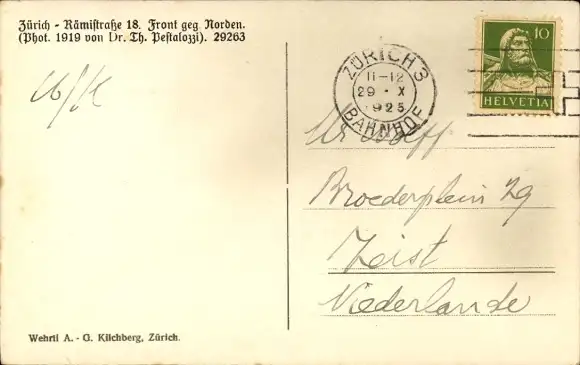 Zürich - Rämistraße 18. Front geg. Norden.
(Phot. 1919 von Dr. Th. Pestalozzi). 29263
ZÜRICH 3
11-12
29 · X
1925
BAHNHOF
10
HELVETIA
Broederplein 29
Zeist
Niederlande
Wehrli A. - G. Kilchberg, Zürich.